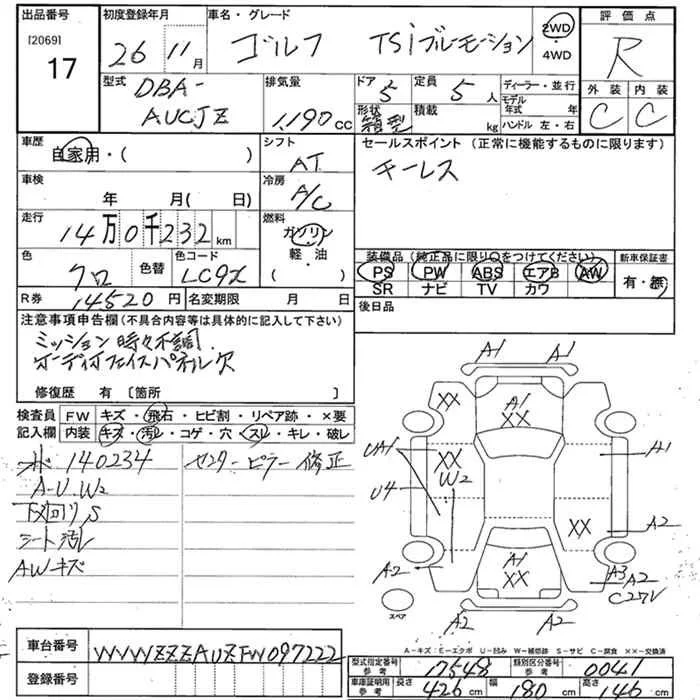 出品番号
[2069]
17
初度登録年月
26 11月
車名・グレード
ゴルフ TSiブルーモーション
2WD
・
4WD
評価点
R
外装 内装
C C
型式
DBA-
AUCJZ
排気量
1,190cc
ドア
5
形状
箱型
定員
5人
積載
kg
ディーラー・並行
モデル年式 年
ハンドル 左・右
車歴
自家用・( )
シフト
AT
車検
年 月( 日)
冷房
A/C
走行
14万0千232km
燃料
ガソリン
軽・油
( )
色
クロ
色替
色コード
LC9X
R券 14520円
名変期限 月 日
セールスポイント(正常に機能するものに限ります)
キーレス
装備品(純正品に限り○をつけてください)
PS PW ABS エアB AW
SR ナビ TV カワ
新車保証書
有・無
後日品
注意事項申告欄(不具合内容等は具体的に記入して下さい)
ミッション時々不調
オーディオフェイスパネル欠
修復歴 有 [箇所 ]
検査員記入欄
FW キズ・飛石・ヒビ割・リペア跡・×要
内装 キズ・汚レ・コゲ・穴・スレ・キレ・破レ
140234
A-U W2
下廻りS
シート汚レ
AWキズ
センターピラー修正
A1 A1
XX
A1
XX
UA1
XX
W2
A1
U4
A2
XX
A2
A1
XX
A3
A2
C27V
A2 A2
スペア
A-キズ E-エクボ U-凹み W-補修跡 S-サビ C-腐食 XX-交換済
車台番号 WVWZZZAUZFW097222
登録番号
型式指定番号
参考
17548
類別区分番号
参考
0041
車庫証明用
参考
長さ 426cm 幅 180cm 高さ 146cm